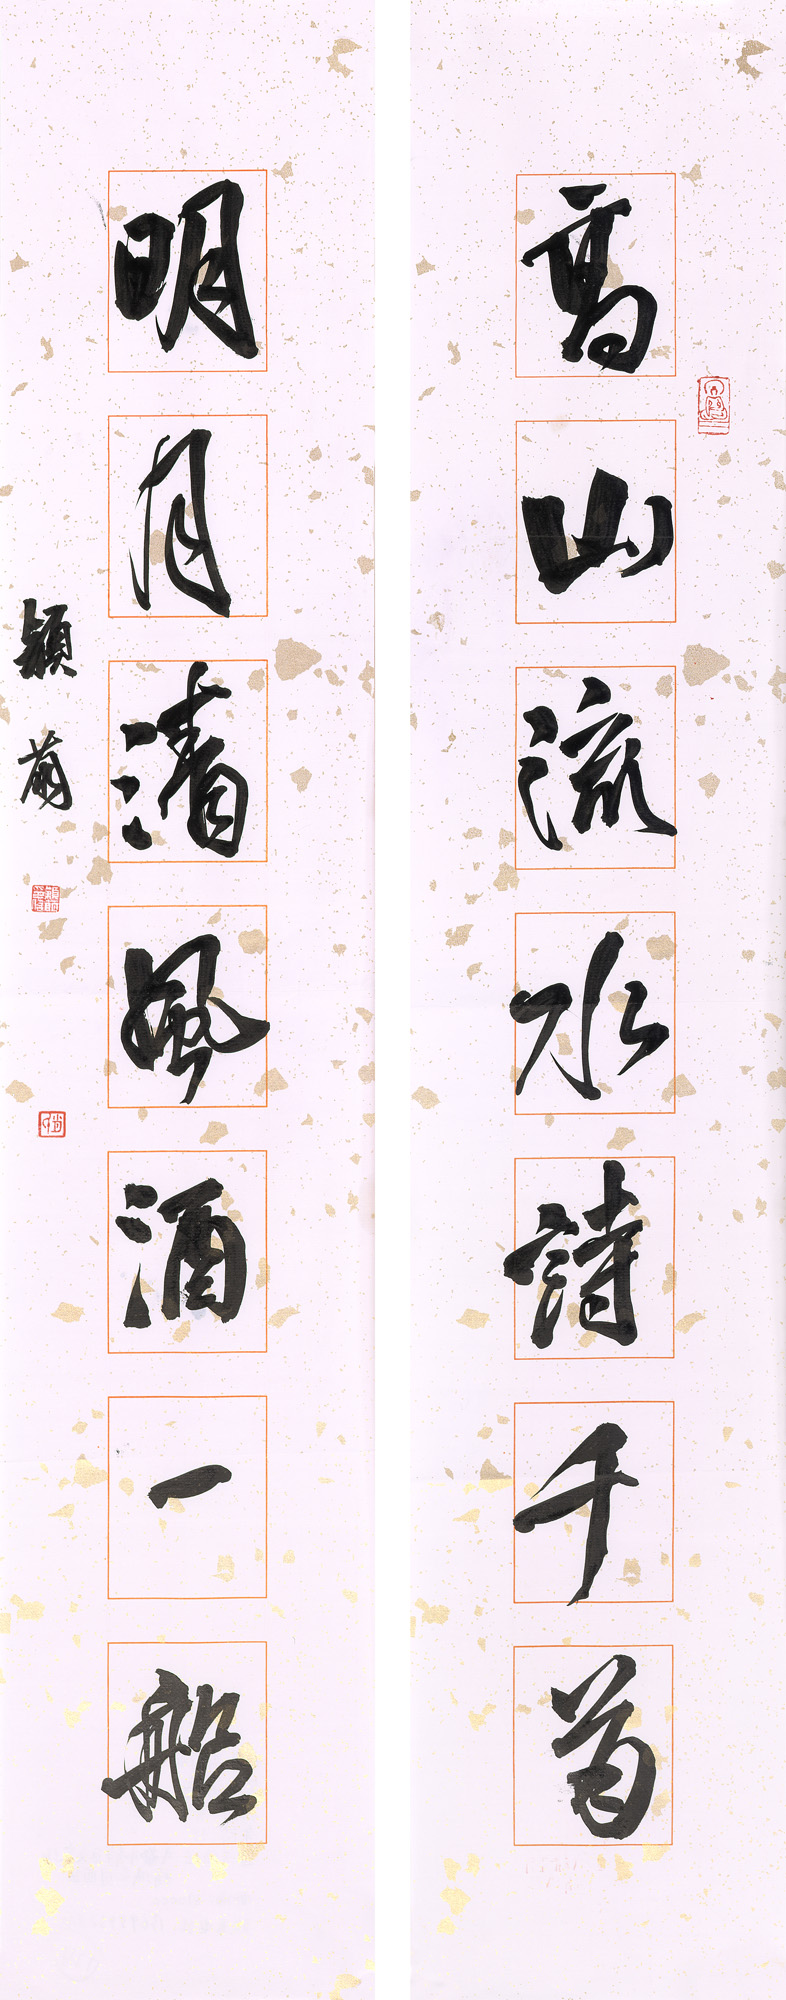 高山流水詩千首
明月清風酒一船
穎蘭